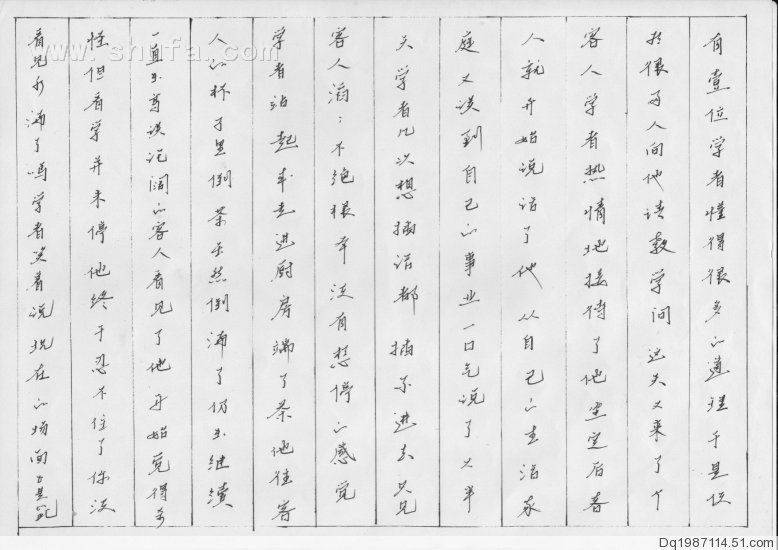 有壹位学者懂得很多的道理于是位
求很多人向他请教学问 这天又来了个
客人学者热情地接待了他坐定后客
人就开始说话了他从自己的生活家
庭又谈到自己的事业一口气说了大半
天学者几次想插话都插不进去只见
客人滔:不绝根本没有想停的感觉
学者站起来走进厨房端了茶他往客
人的杯子里倒茶虽然倒满了仍在继续
一直在高谈论阔的客人看见了他开始觉得奇
怪但看学并未停他终于忍不住了你没
看见水满了吗学者笑着说现在的场面
www.shufa.com
Dq1987114.51.com